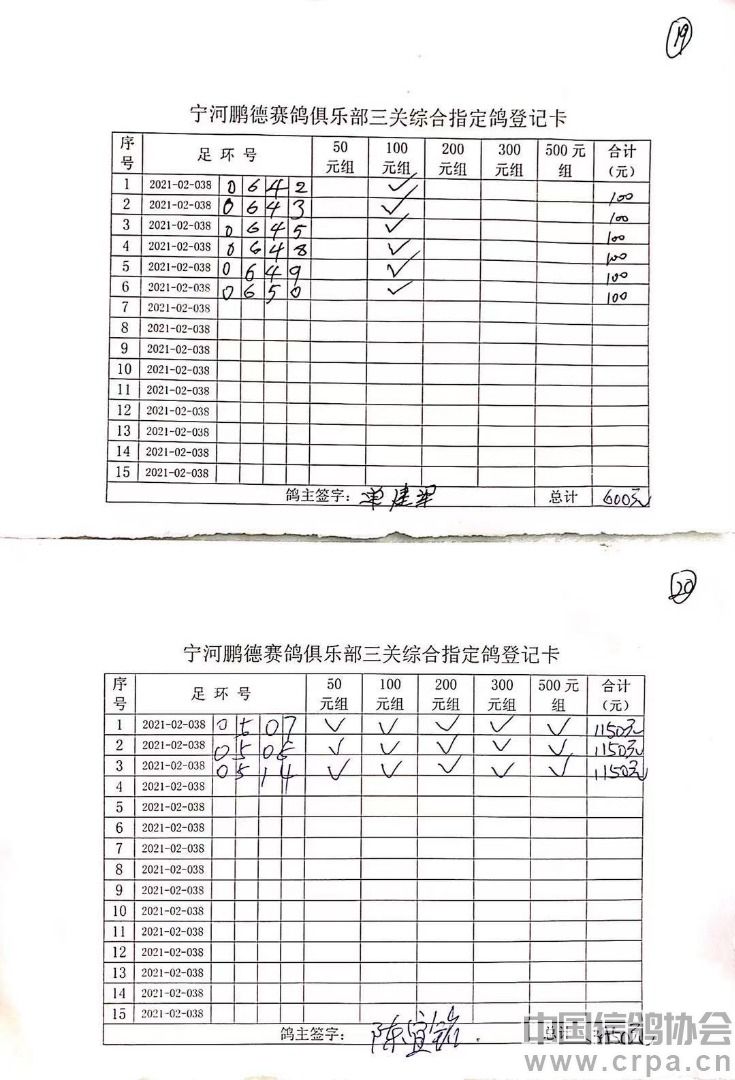 19
宁河鹏德赛鸽俱乐部三关综合指定鸽登记卡
序号 足环号 50元组 100元组 200元组 300元组 500元组 合计(元)
1 2021-02-038 0642 ✓ 100
2 2021-02-038 0643 ✓ 100
3 2021-02-038 0645 ✓ 100
4 2021-02-038 0648 ✓ 100
5 2021-02-038 0649 ✓ 100
6 2021-02-038 0650 ✓ 100
7 2021-02-038
8 2021-02-038
9 2021-02-038
10 2021-02-038
11 2021-02-038
12 2021-02-038
13 2021-02-038
14 2021-02-038
15 2021-02-038
鸽主签字: 总计 600元
20
宁河鹏德赛鸽俱乐部三关综合指定鸽登记卡
序号 足环号 50元组 100元组 200元组 300元组 500元组 合计(元)
1 2021-02-038 0507 ✓ ✓ ✓ ✓ ✓ 1150元
2 2021-02-038 050 ✓ ✓ ✓ ✓ ✓ 1150元
3 2021-02-038 0514 ✓ ✓ ✓ ✓ ✓ 1150元
4 2021-02-038
5 2021-02-038
6 2021-02-038
7 2021-02-038
8 2021-02-038
9 2021-02-038
10 2021-02-038
11 2021-02-038
12 2021-02-038
13 2021-02-038
14 2021-02-038
15 2021-02-038
鸽主签字: 陈宜 总计
中国信鸽协会
www.crpa.cn